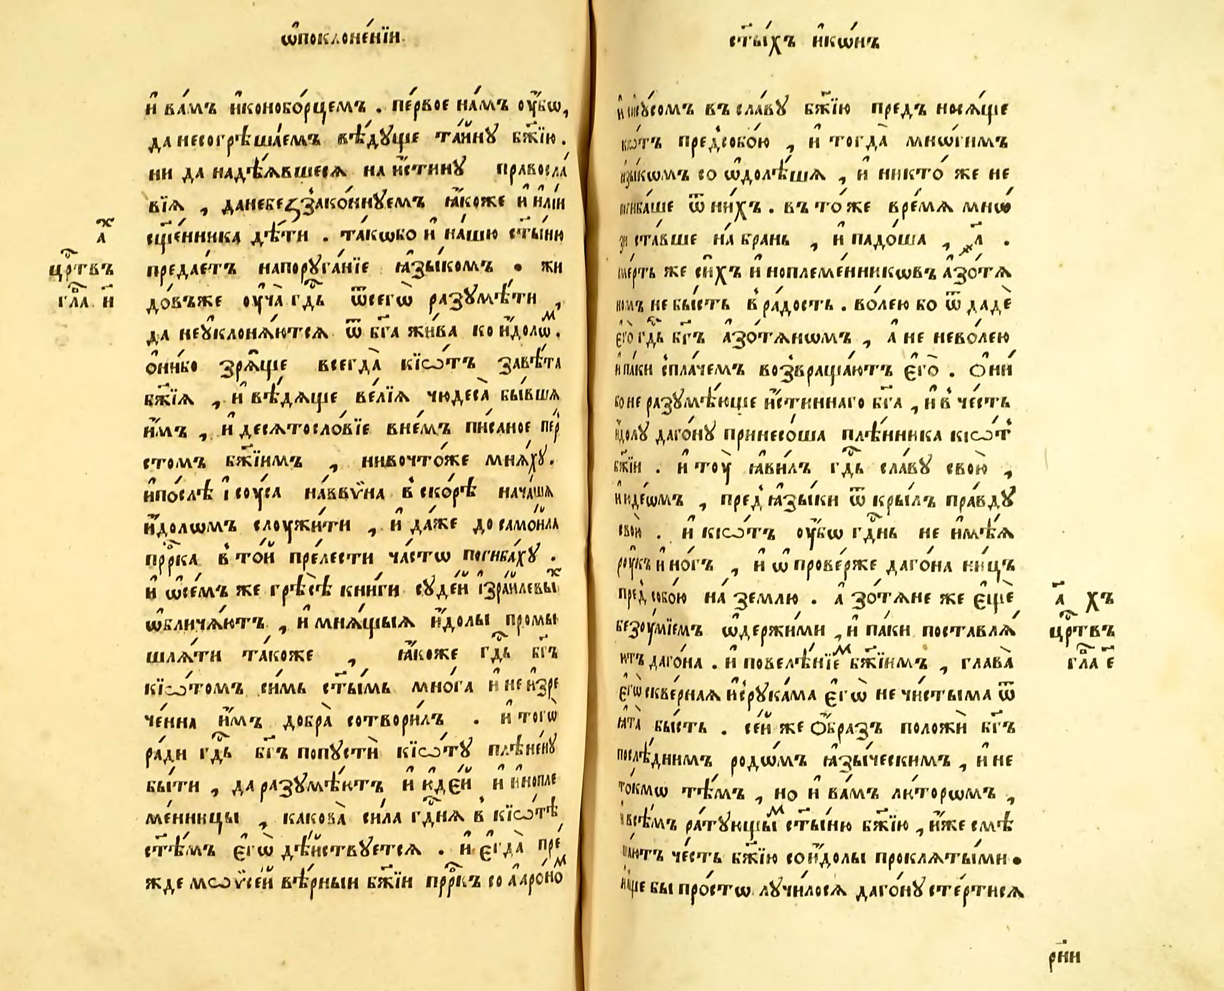 ѡ҆поклоне́нїи
и҆ ва́мъ и҆коноборцемъ . пе́рвое на́мъ ᲂу҆́бѡ,
да несогрѣша́емъ вѣ́дꙋще та́йнꙋ бж҃їю .
ни да надѣ́ѧвшесѧ на и҆́стинꙋ правосла́
вїѧ , данебеззако́ннꙋемъ ꙗ҆коже и҆ и҆лі́и
сщ҃е́нника дѣ́ти . такѡбо и҆ на́шю ст҃ы́ню
предае́тъ напорꙋга́нїе ꙗ҆зы́комъ . жи
до́въже ᲂу҆ча̀ гд҇ь ѿсегѡ̀ разꙋмѣ́ти ,
да неꙋклонѧ́ютсѧ ѿ бг҃а жи́ва ко и҆́долѡⷨ.
ѻ҆ни́бо зрѧ́ще всегда̀ кїѡ́тъ завѣ́та
бж҃їѧ , и҆ вѣ́дѧще ве́лїѧ чюдеса̀ бы́вшѧ
и҆́мъ , и҆ десѧтосло́вїе вне́мъ пи́саное пе́р
стомъ бж҃їимъ , нивочто́же мнѧ́хꙋ.
и҆по́слѣ і҆сᲂу́са на́ввѵна в ско́рѣ нача́шѧ
и҆́долѡмъ слᲂужи́ти , и҆ да́же до самои́ла
прⷪ҇рка в то́й пре́лести ча́стѡ погиба́хꙋ .
и҆ ѡ҆се́мъ же грѣ́сѣ кни́ги сꙋде́й і҆зра́илевыⷯ
ѡ҆блича́ютъ , и҆ мнѧ́щыѧ и҆́долы про́мы
шлѧ́ти та́коже , ꙗ҆́коже гд҇ь бг҃ъ
кїѡ́томъ си́мь ст҃ы́мь мно́га и҆ неи҆зре́
че́нна и҆́мъ добра̀ сотвори́лъ . и҆ тогѡ̀
ра́ди гд҇ь бг҃ъ попꙋстѝ кїѡ́тꙋ плѣне́нꙋ
бы́ти , да разꙋмѣ́ютъ и҆ і҆ꙋде́й и҆ и҆нопле
ме́ницы , какова̀ си́ла гд҇нѧ в кїѡ́тѣ
ст҃ѣ́мъ є҆гѡ̀ дѣ́йствꙋетсѧ . и҆ є҆гда̀ пре́
жде мѡѷсе́й вѣ́рныи бж҃їи прⷪ҇ркъ со а҆аро́ноⷨ
аⷯ
црⷭ҇твъ
гла҃ и҃
ст҃ы́хъ и҆кѡ́нъ
и҆ і҆исᲂу́сомъ въ сла́вꙋ бж҃їю предъ носѧ́ще
кїѡ́тъ предсобо́ю , и҆ тогда̀ мнѡ́гимъ
ꙗ҆зы́комъ со ѡ҆долѣ́шѧ , и҆ никто́ же не
погиба́ше ѿ ни́хъ . въ то́же вре́мѧ мнѡ́
зи ста́вше на бра́нь , и҆ падо́ша , л҃ .
сме́рть же си́хъ и҆ноплеме́нникѡвъ а҆зо́тѧ
номъ не бы́сть в ра́дость . во́лею бо ѿ дадѐ
є҆го̀ гд҇ь бг҃ъ а҆зо́тѧнѡмъ , а҆ не нево́лею
и҆ па́ки спла́чемъ возвраща́ютъ є҆го̀ . Ѻ҆ни́
бо не разꙋмѣ́юще и҆́стиннаго бг҃а , и҆ в че́сть
и҆́долꙋ даго́нꙋ принесо́ша плѣ́нника кїѡ́т
бж҃їи . и҆ тꙋ̀ ꙗ҆ви́лъ гд҇ь сла́вꙋ свою̀ ,
и҆ і҆ꙋде́ѡмъ , пред ꙗ҆зы́ки ѿ кры́лъ пра́вдꙋ
свою̀ . и҆ кїѡ́тъ ᲂу҆́бѡ гд҇нь не и҆мѣ́ѧ
рᲂу́къ и҆ но́гъ , и҆ ѡ҆ прове́рже даго́на ни́цъ
пред собо́ю на зе́млю . а҆ зо́тѧне же є҆щѐ
безᲂу́мїемъ ѡ҆держи́ми , и҆ па́ки поставлѧ́
ютъ даго́на . и҆ повелѣ́нїеⷨ бж҃їимъ , глава̀
є҆гѡ̀ скве́рнаѧ и҆ с рꙋка́ма є҆гѡ̀ не чи́стыма ѿ
ꙗ҆та̀ бысть . се́й же Ѻ҆́бразъ положѝ бг҃ъ
послѣ́днимъ родѡ́мъ ꙗ҆зы́ческимъ , и҆ не
то́кмѡ тѣ́мъ , но и҆ ва́мъ лю́торѡмъ ,
и҆ всѣ́мъ ра́тꙋющыⷨ ст҃ы́ню бж҃їю , и҆́же смѣ́
ша́ютъ че́сть бж҃їю со и҆́долы проклѧ́тыми.
а҆́ще бы про́стѡ лꙋчи́лосѧ даго́нꙋ сте́ртисѧ
а҃ хъ
црⷭ҇твъ
гла҃ є҃
рн҃и